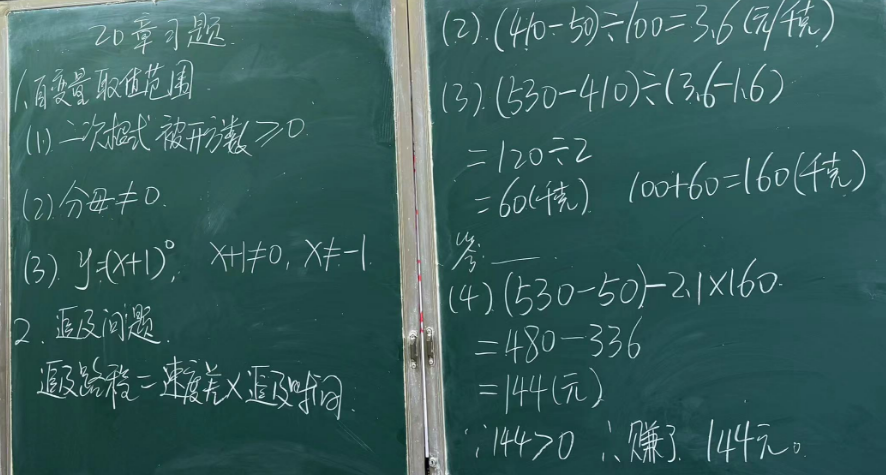 20章习题
1.自变量取值范围
(1)二次根式 被开方数≥0
(2)分母≠0
(3) y=(x+1)⁰, x+1≠0, x≠-1
2.追及问题
追及路程=速度差×追及时间
(2).(410-50)÷100=3.6(元/千克)
(3).(530-410)÷(3.6-1.6)
=120÷2
=60(千克) 100+60=160(千克)
答
(4).(530-50)-2.1×160
=480-336
=144(元)
∵144>0 ∴赚了 144元。